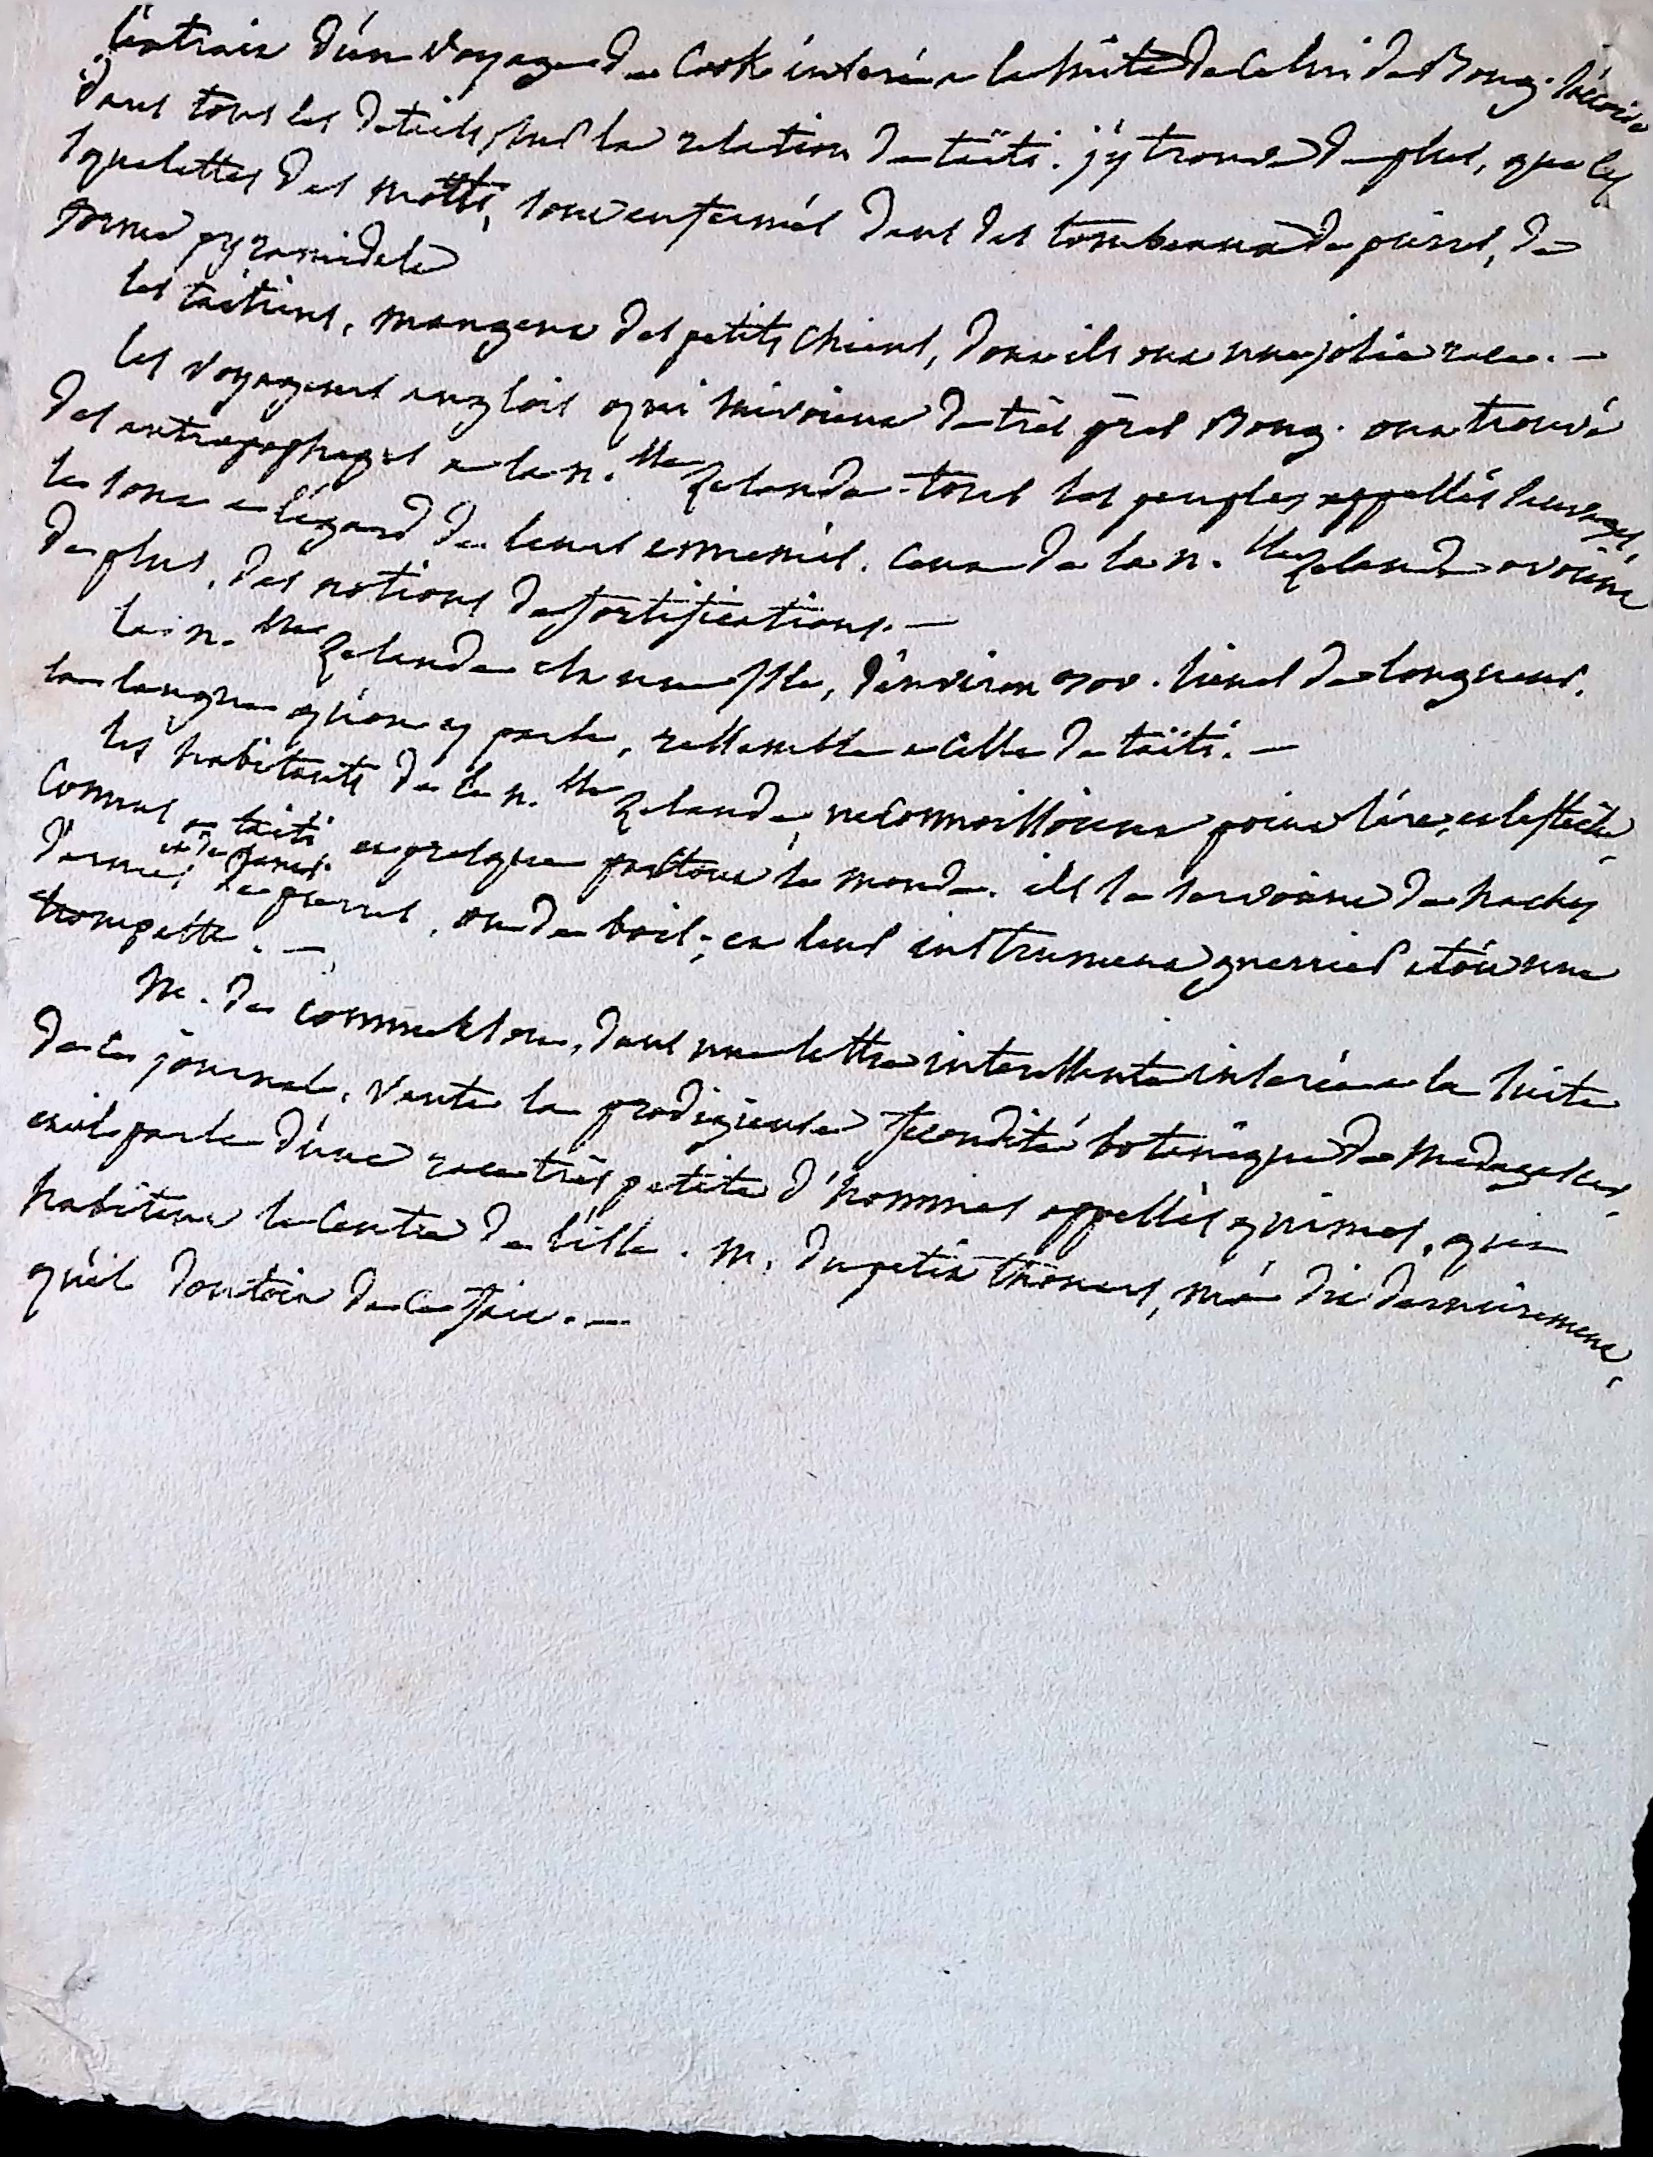 L'extrait d'un voyage de Cook inséré a la suite de celui de Boug. s'accorde
dans tous les details sur la relation de taïti. j'y trouve de plus, que les
squelettes des morts, sont enfermés dans des tombeaux de pierres, de
forme pyramidale
les taïtiens, mangent des petits chiens, dont ils ont une jolie race. —
les voyageurs anglois qui suivoient de très près Boug. ont trouvé
des antropophages a la n.lle Zelande. tous les peuples appellés sauvages,
le sont a l'égard de leurs ennemis. ceux de la n.lle Zelande avoient
de plus, des notions de fortifications. —
la n.lle Zelande est une isle, d'environ 300. lieues de longueur.
la langue qu'on y parle, ressemble a celle de taïti. —
les habitants de la n.lle Zelande, ne connoissoient point l'arc, et la flèche,
connus a taïti, et presque partout le monde. ils se servoient de haches
et de lances
d'armes de pierres, ou de bois; et leur instrument guerrier étoit une
trompette. —
M. de commerson, dans une lettre interessante inserée a la suite
de ce journal, vante la prodigieuse fecondité botanique de Madagascar,
et il parle d'une race très petite d'hommes appellés quimos, qui
habitent le centre de l'isle. M. du petit thouars, m'a dit dernierement,
qu'il doutoit de ce fait. —